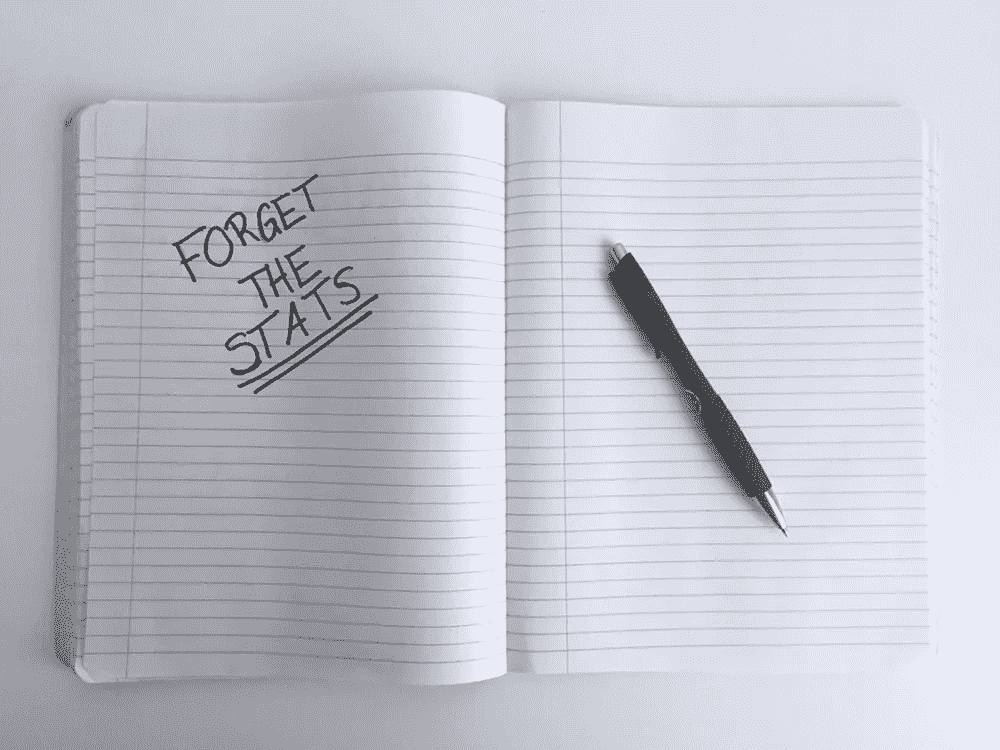 FORGET
THE
STATS